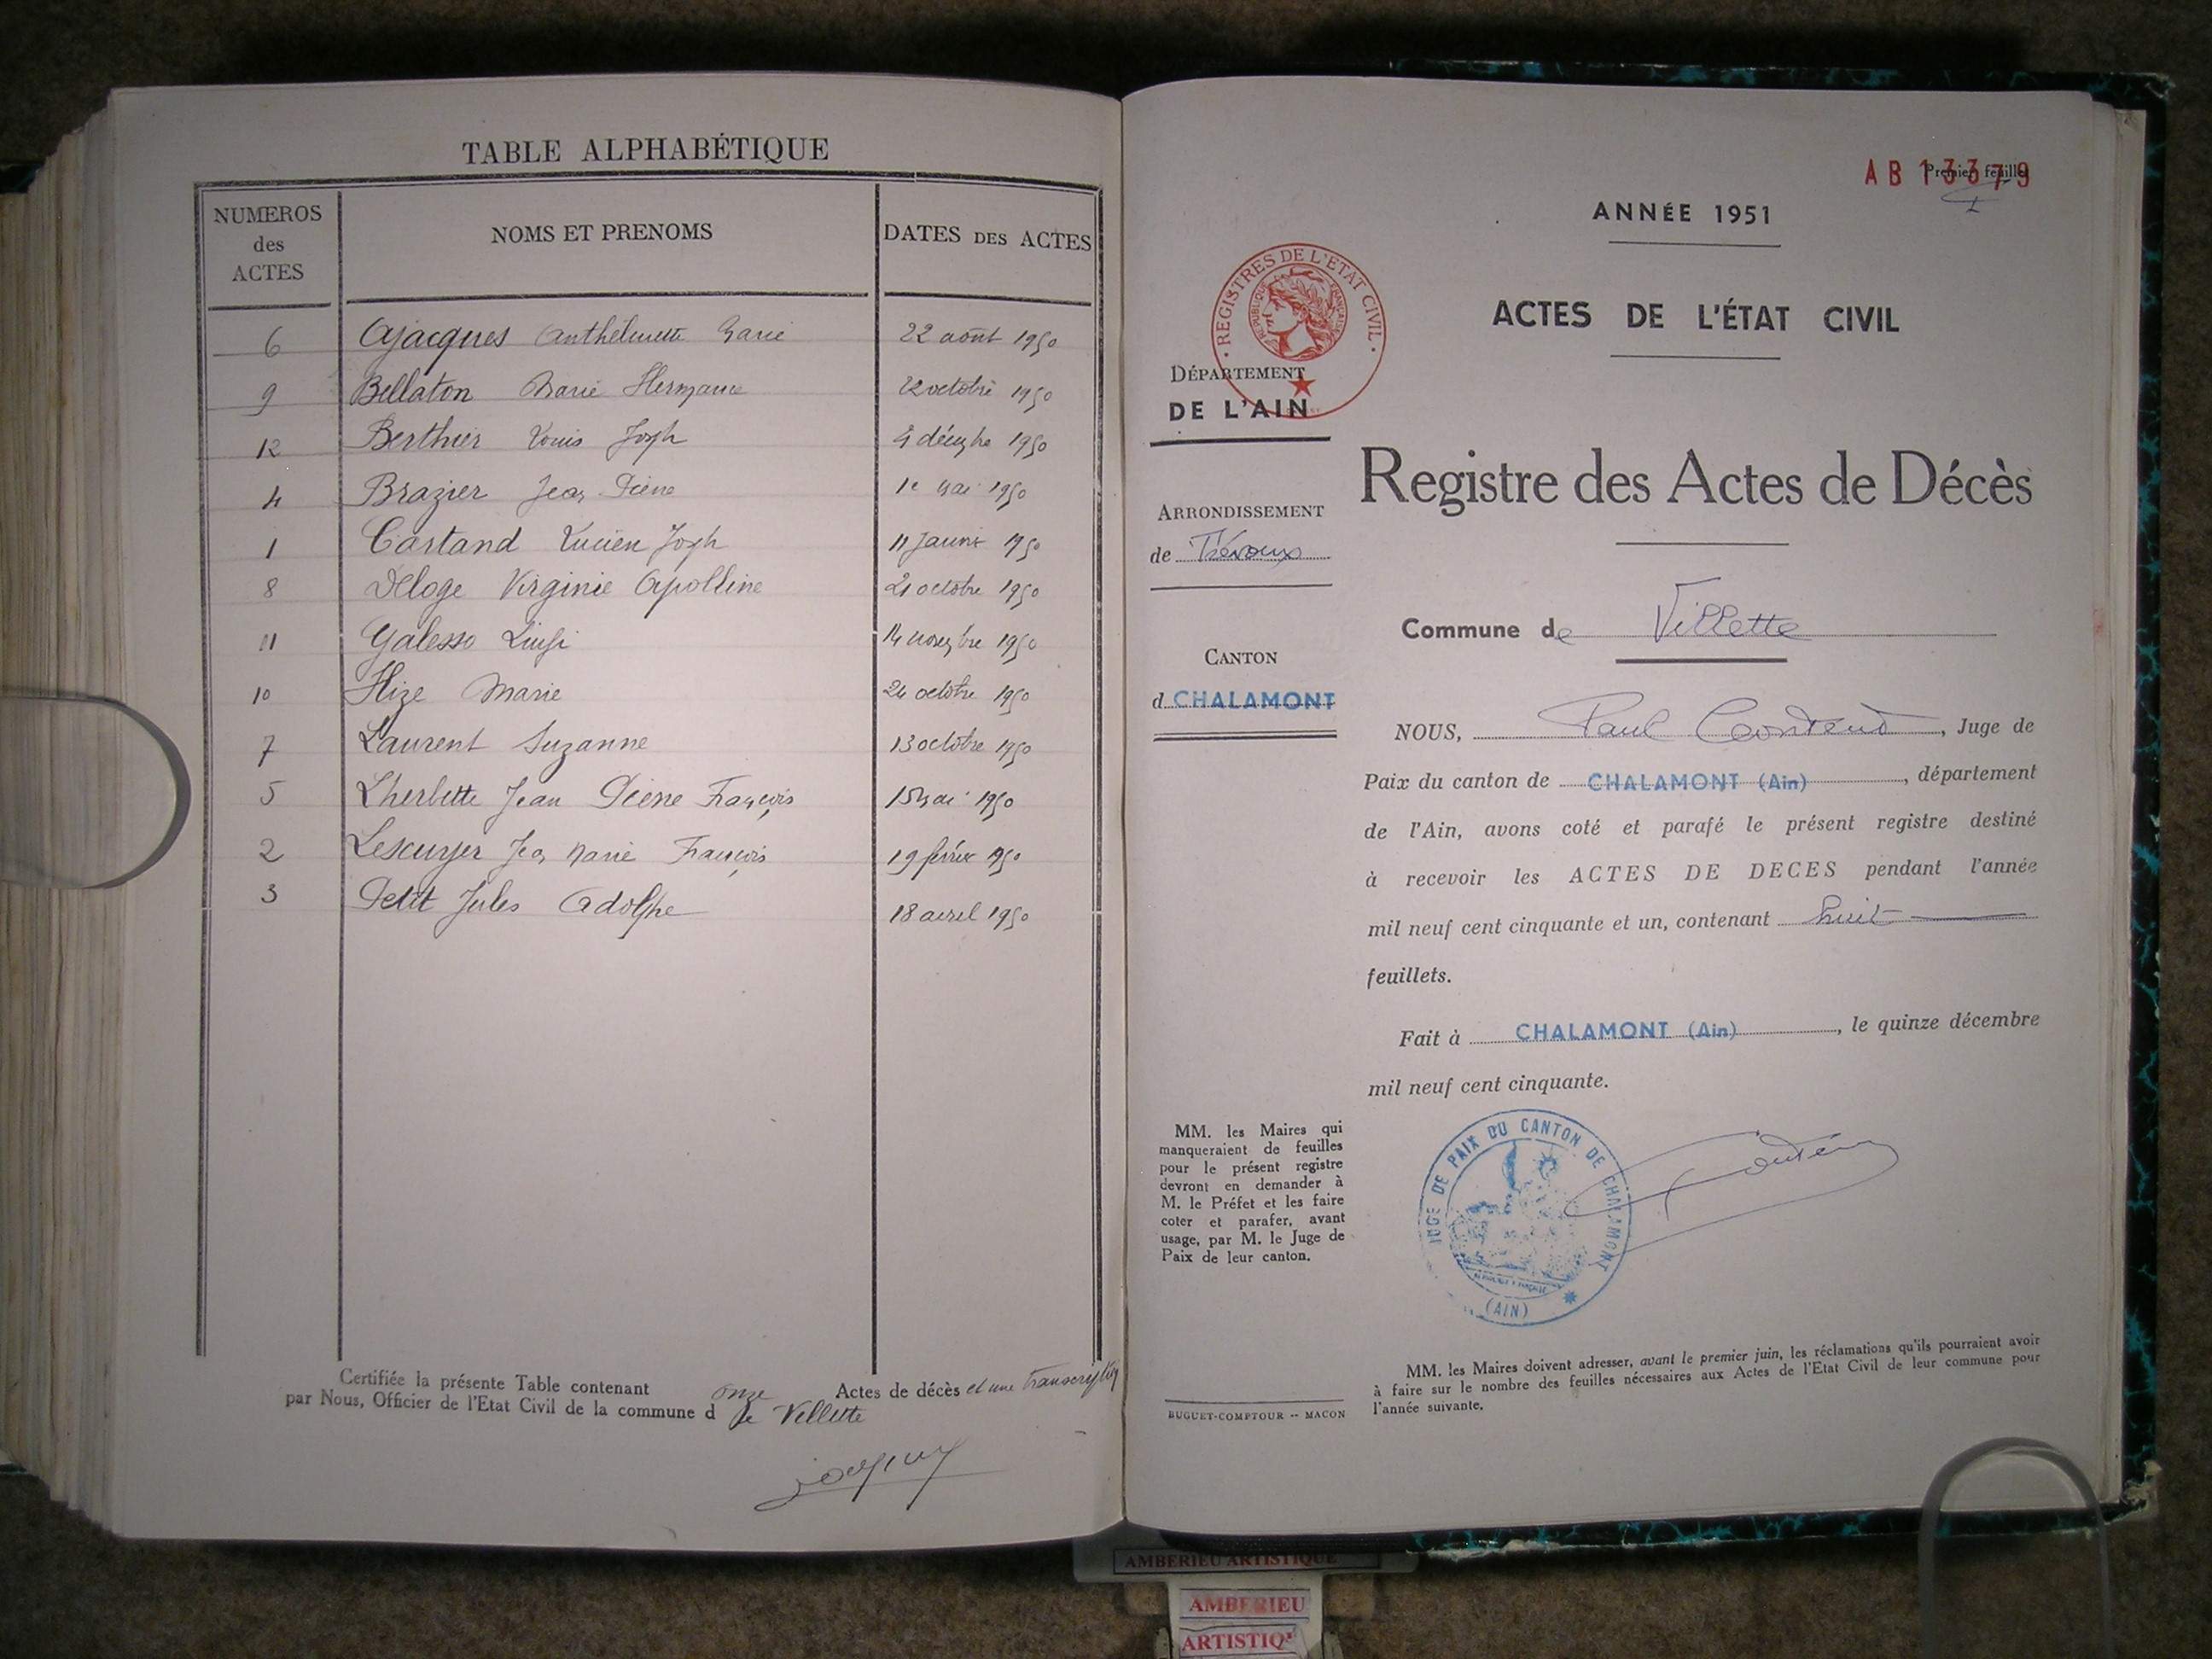 TABLE ALPHABÉTIQUE
NUMEROS des ACTES NOMS ET PRENOMS DATES DES ACTES
6 Ajacques Anthelmette Marie 22 août 1950
9 Bellaton Marie Hermance 22 octobre 1950
12 Berthier Louis Joseph 4 décembre 1950
4 Brazier Jean Pierre 1e mai 1950
1 Cartand Lucien Joseph 11 Janvier 1950
8 Deloge Virginie Apolline 21 octobre 1950
11 Galesso Luigi 14 novembre 1950
10 Hize Marie 24 octobre 1950
7 Laurent Suzanne 13 octobre 1950
5 Lherbette Jean Pierre François 15 mai 1950
2 Lescuyer Jean Marie François 19 février 1950
3 Petit Jules Adolphe 18 avril 1950
Certifiée la présente Table contenant onze Actes de décès et une transcription
par Nous, Officier de l'Etat Civil de la commune d de Villette
AB 13379
Premier feuillet
I
ANNÉE 1951
ACTES DE L'ÉTAT CIVIL
REGISTRES DE L'ETAT CIVIL
REPUBLIQUE FRANÇAISE
DÉPARTEMENT
DE L'AIN
Registre des Actes de Décès
ARRONDISSEMENT
de Trévoux
Commune de Villette
CANTON
d CHALAMONT
NOUS, Paul Contend, Juge de
Paix du canton de CHALAMONT (Ain), département
de l'Ain, avons coté et parafé le présent registre destiné
à recevoir les ACTES DE DECES pendant l'année
mil neuf cent cinquante et un, contenant huit
feuillets.
Fait à CHALAMONT (Ain), le quinze décembre
mil neuf cent cinquante.
JUGE DE PAIX DU CANTON DE CHALAMONT
(AIN)
MM. les Maires qui
manqueraient de feuilles
pour le présent registre
devront en demander à
M. le Préfet et les faire
coter et parafer, avant
usage, par M. le Juge de
Paix de leur canton.
MM. les Maires doivent adresser, avant le premier juin, les réclamations qu'ils pourraient avoir
à faire sur le nombre des feuilles nécessaires aux Actes de l'Etat Civil de leur commune pour
l'année suivante.
BUGUET-COMPTOUR -- MACON
AMBERIEU ARTISTIQUE
AMBERIEU
ARTISTIQ